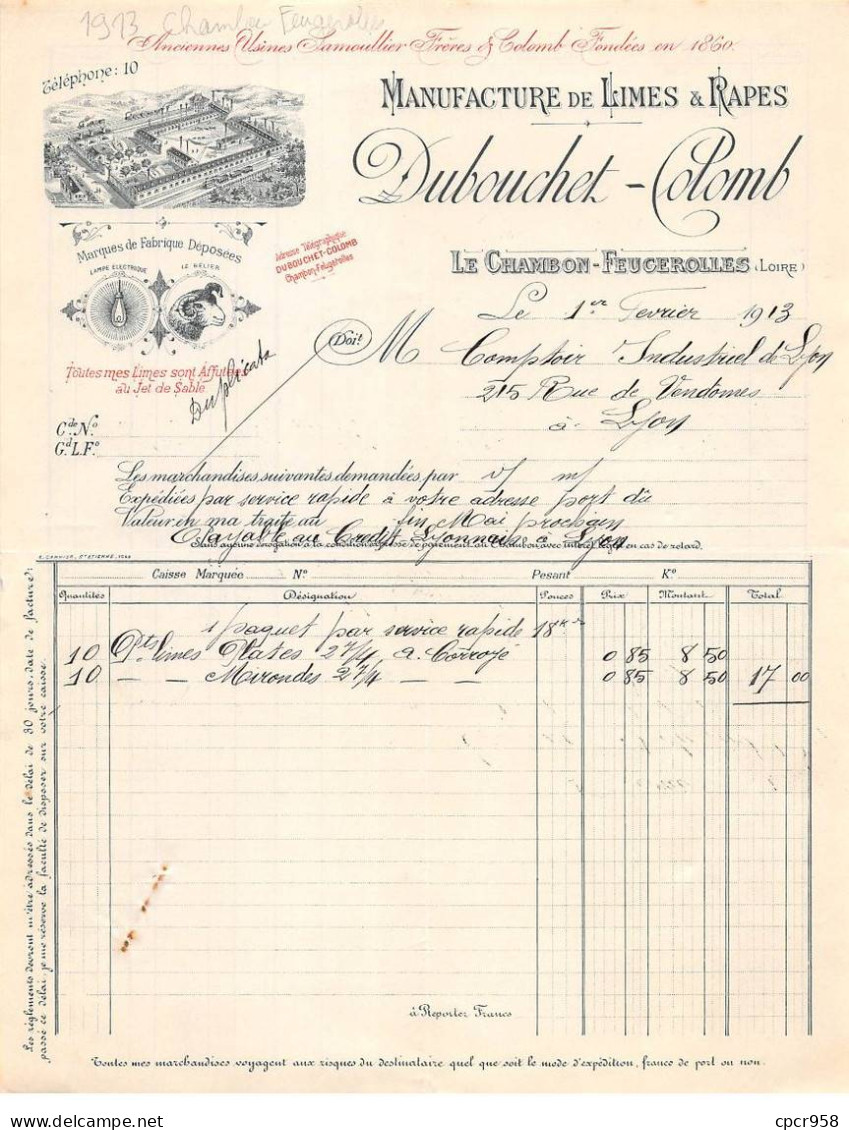 1913 Chambon Feugerolles
Anciennes Usines Samoullier Frères & Colomb Fondées en 1860.
Téléphone: 10
MANUFACTURE DE LIMES & RAPES
Dubouchet-Colomb
LE CHAMBON-FEUGEROLLES (LOIRE)
Marques de Fabrique Déposées
LAMPE ÉLECTRIQUE LE BÉLIER
Adresse Télégraphique
DUBOUCHET-COLOMB
Chambon-Feugerolles
Toutes mes Limes sont Affutées
au Jet de Sable
Duplicata
Le 1er Fevrier 1913
Doit M Comptoir Industriel de Lyon
215 Rue de Vendomes
à Lyon
Cde N°
Gd L. F°
Les marchandises suivantes demandées par v/ m/
Expédiées par service rapide à votre adresse port dû
Valeur en ma traite au fin Mai prochain
Payable au Credit Lyonnais à Lyon
Sans aucune dérogation à la condition expresse de payement au Chambon avec intérêt légal en cas de retard.
Caisse Marquée N° Pesant K°
Quantités Désignation Pouces Prix Montant Total
1 paquet par service rapide 18
10 Pts limes Plates 2 7/4 0 85 8 50
10 — — Mirondes 2 7/4 — — 0 85 8 50 17 00
à Reporter Francs
Les règlements devront m'être adressés dans le délai de 30 jours, date de facture;
passé ce délai, je me réserve la faculté de disposer sur votre caisse.
Toutes mes marchandises voyagent aux risques du destinataire quel que soit le mode d'expédition, franco de port ou non.
delcampe.net
cpcr958